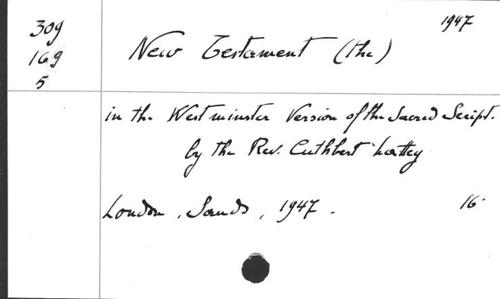 309
169
5
1947
New Testament (the)
in the Westminster Version of the Sacred Script.
by the Rev. Cuthbert Lattey
London, Sands, 1947.
16°